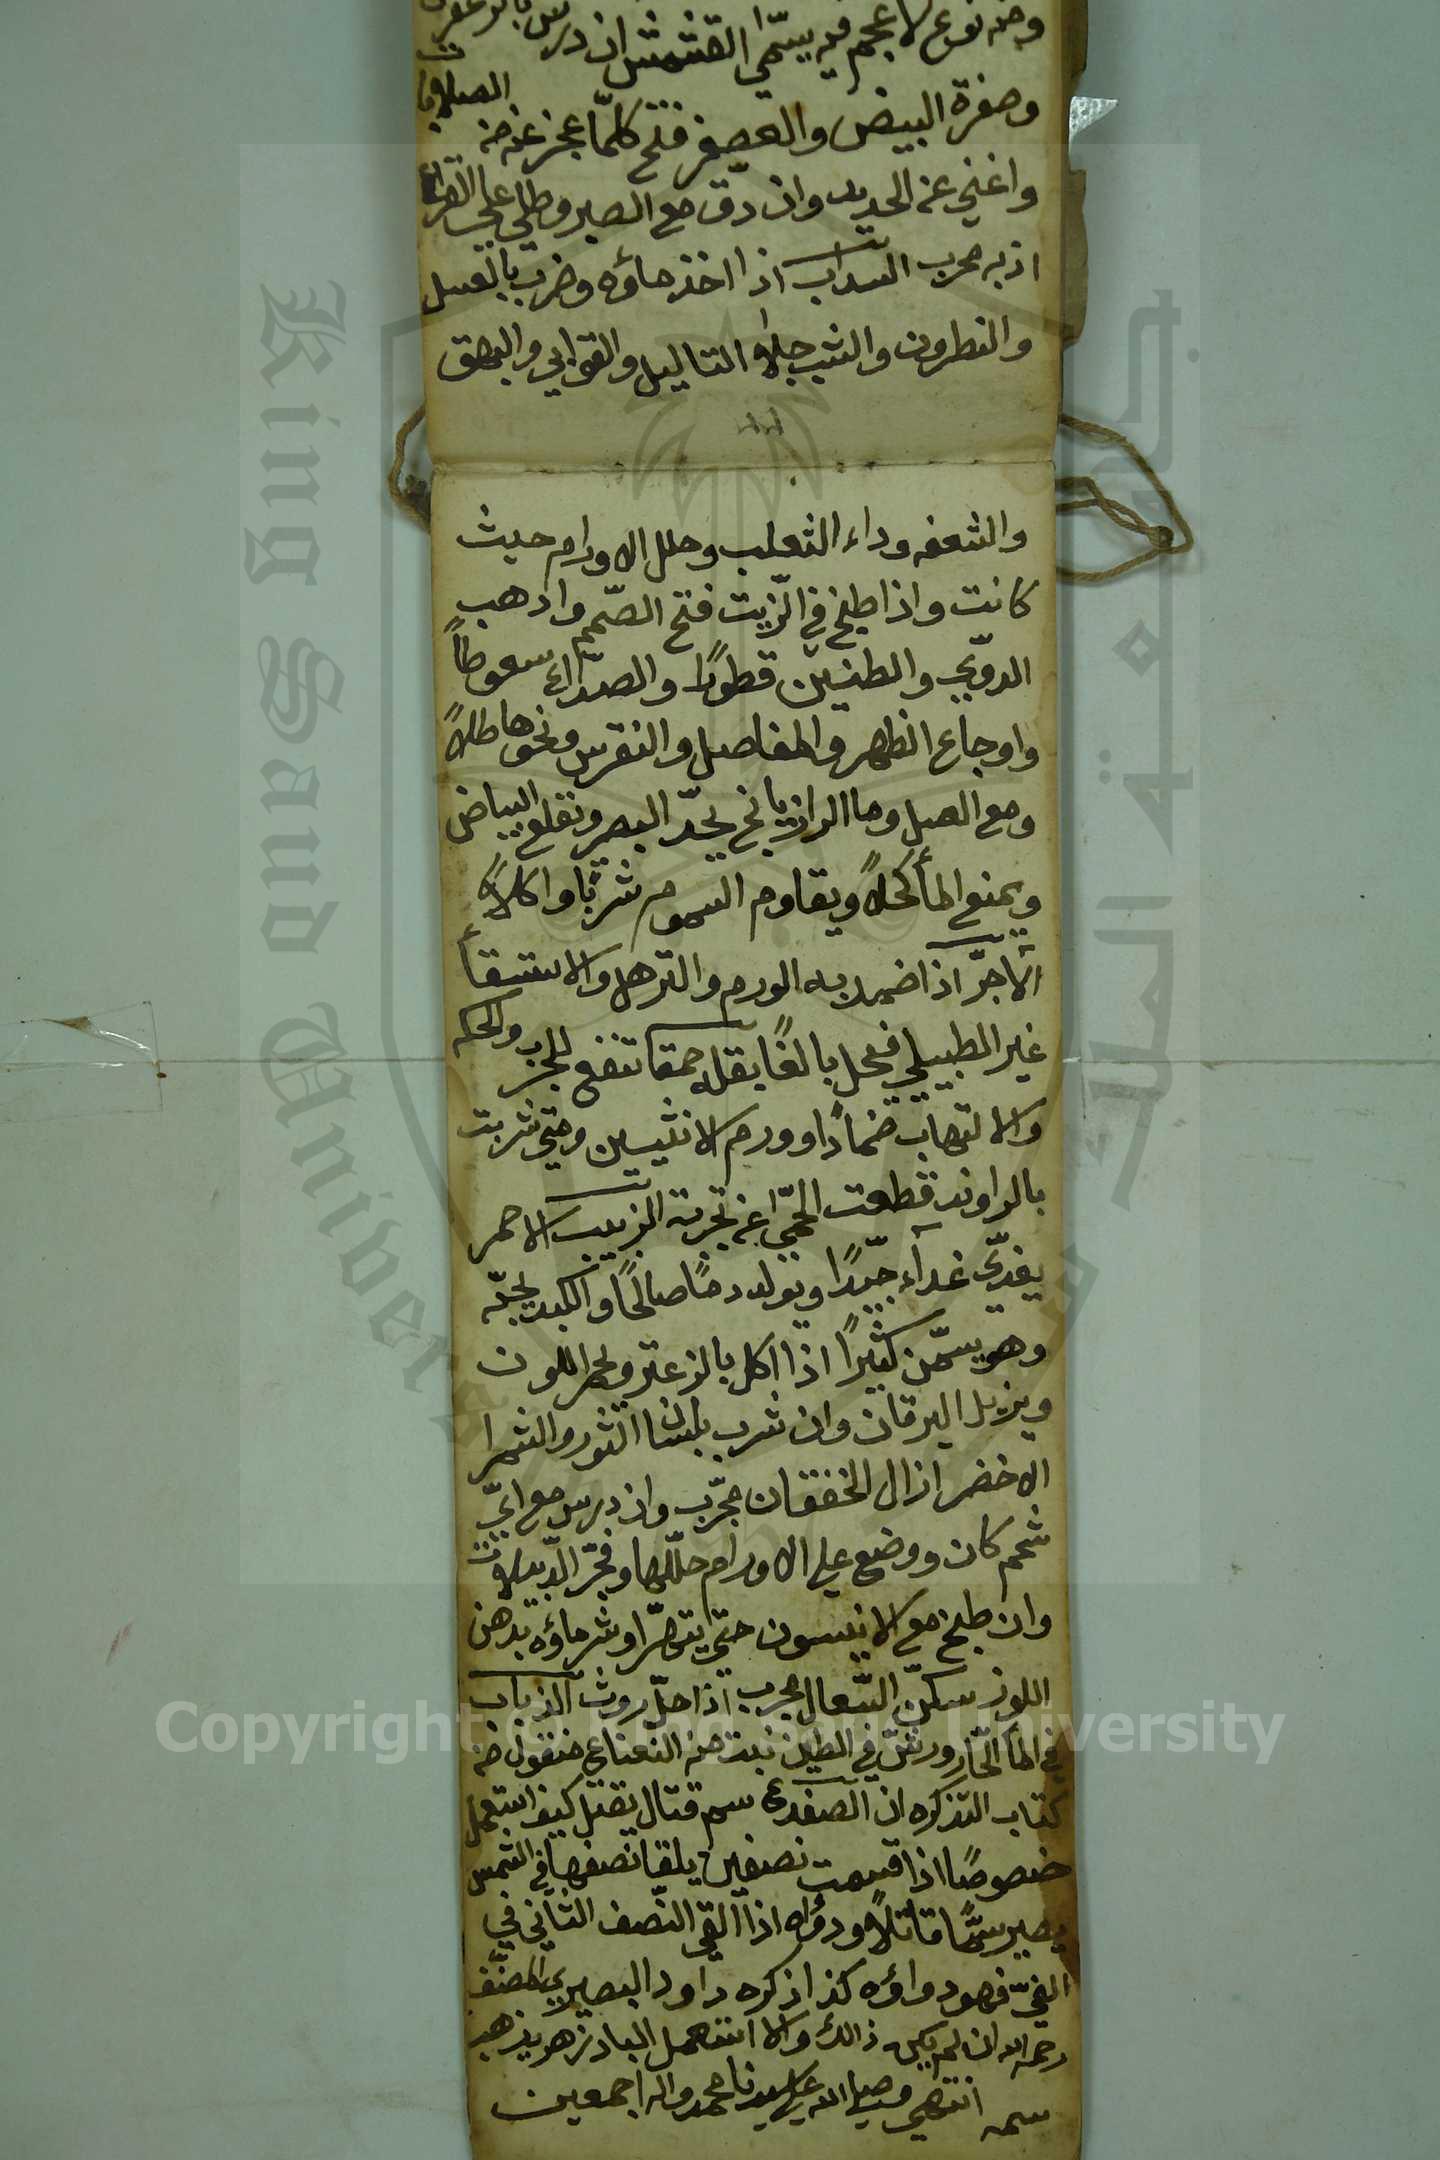 ومنه نوع لا عجم فيه يسمّي القشمش ان درس بالزعفران
وصفرة البيض والعصفر فتح كلمّا عجز عنه من الصلابات
واغني عن الحديد وان دقّ مع الصبر وطلي علي القراع
اذهبه مجرب السداب اذا اخذ ماؤه وضرب بالعسل
والنطرون والشب جلاه التاليل والقوابي والبهق
والشعفه وداء الثعلب وحلل الاورام حيث
كانت واذا طبخ في الزّيت فتح الصّمم واذهب
الدوّي والطنين قطورًا والصدّاع سعوطاً
واوجاع الظهر والمفاصل والنقرس ونحوها طلاً
ومع العسل وما الرازيانج يحدّ البصر ونقلع البياض
ويمنع المأ كحلاً ويقاوم السموم شربًا واكلاً
الاجرّ اذا ضمد به الورم والترهل والاستسقأ
غير الطبيلي فعل بالغًا بقله حمقا تنفع للجرب والحكه
والالتهاب ضمادًا وورم الانثيين ومتي شربت
بالراوند قطعت الحمّي عن تجربة الزبيب الاحمر
يغذّي غدآء جيّدًا ويولد دمًا صالحًا والكبد يحبّه
وهو يسمّن كثيرًا اذا اكل بالزعتر ويحمر اللون
ويزيل اليرقان وان شرب بلسان الثور والشمرا
الاخضر ازال الخفقان مجرّب وان درس مع ايّ
شحم كان ووضع علي الاورام حللّها وفجّر الدّبيلات
وان طبخ مع الانيسون حتي يتهرّا وشر ماؤه بدهن
اللوز سكّن السّعال مجرب اذا حلّ روث الذباب
في المأ الحّار ورشّ في الطين نبت منه النعناع منقول من
كتاب التذكره ان الضفدع سم قتال يقتل كيف استعمل
خصوصًا اذا قسمت نصفين يلقا نصفها في الشمس
يصير سمًّا قاتلاً ودؤاه اذا القي النّصف الثاني في
الفيّ فهو دواؤه كذا ذكره داود البصيري المصنّف
رحمه الله ان لم يكن ذالك والا استعمل البادزهر يذهب
سمه انتهي وصلي الله علي سيدنا محمد واله اجمعين
King Saud University
Copyright © King Saud University